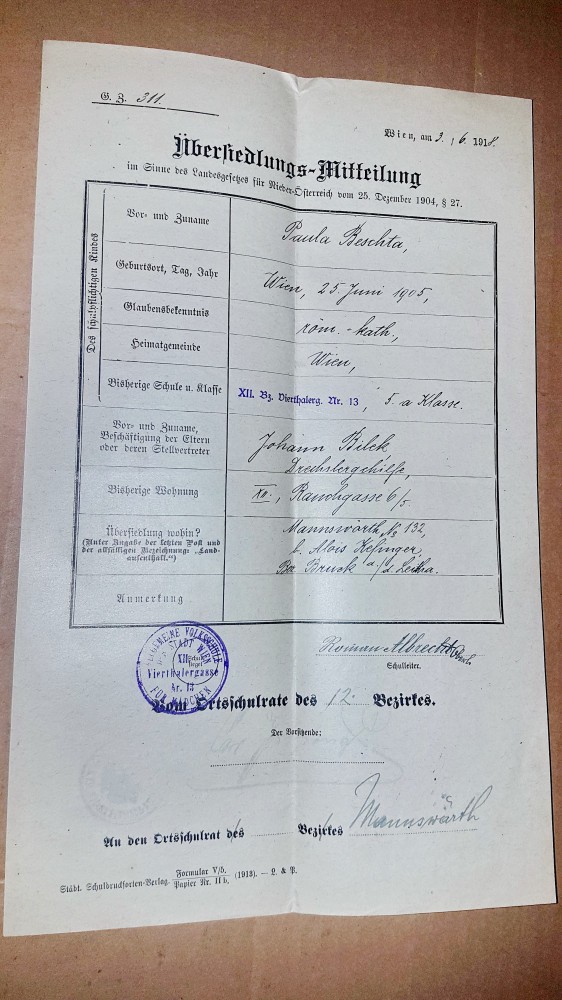 G. Z. 311.
Wien, am 3. / 6. 1918.
Übersiedlungs-Mitteilung
im Sinne des Landesgesetzes für Nieder-Österreich vom 25. Dezember 1904, § 27.
Des schulpflichtigen Kindes
Vor- und Zuname
Paula Beschta,
Geburtsort, Tag, Jahr
Wien, 25. Juni 1905,
Glaubensbekenntnis
röm.-kath.,
Heimatgemeinde
Wien,
Bisherige Schule u. Klasse
XII. Bz. Vierthalerg. Nr. 13, 5. a Klasse.
Vor- und Zuname,
Beschäftigung der Eltern
oder deren Stellvertreter
Johann Bilek
Drechslergehilfe,
Bisherige Wohnung
XII., Rauchgasse 6/5
Übersiedlung wohin?
(Unter Angabe der letzten Post und
der allfälligen Bezeichnung: „Land-
aufenthalt.“)
Mannswörth, No 132,
b. Alois
Bez. Bruck a/d. Leitha.
Anmerkung
ALLGEMEINE VOLKSSCHULE
DER STADT WIEN
XII
Schul-
siegel
Vierthalergasse
Nr. 13
FÜR MÄDCHEN
Roman Albrecht
Schulleiter.
Vom Ortsschulrate des 12. Bezirkes.
Der Vorsitzende:
An den Ortsschulrat des Bezirkes Mannswörth
Städt. Schuldrucksorten-Verlag. Formular V/5. Papier Nr. II b. (1913). — L. & P.